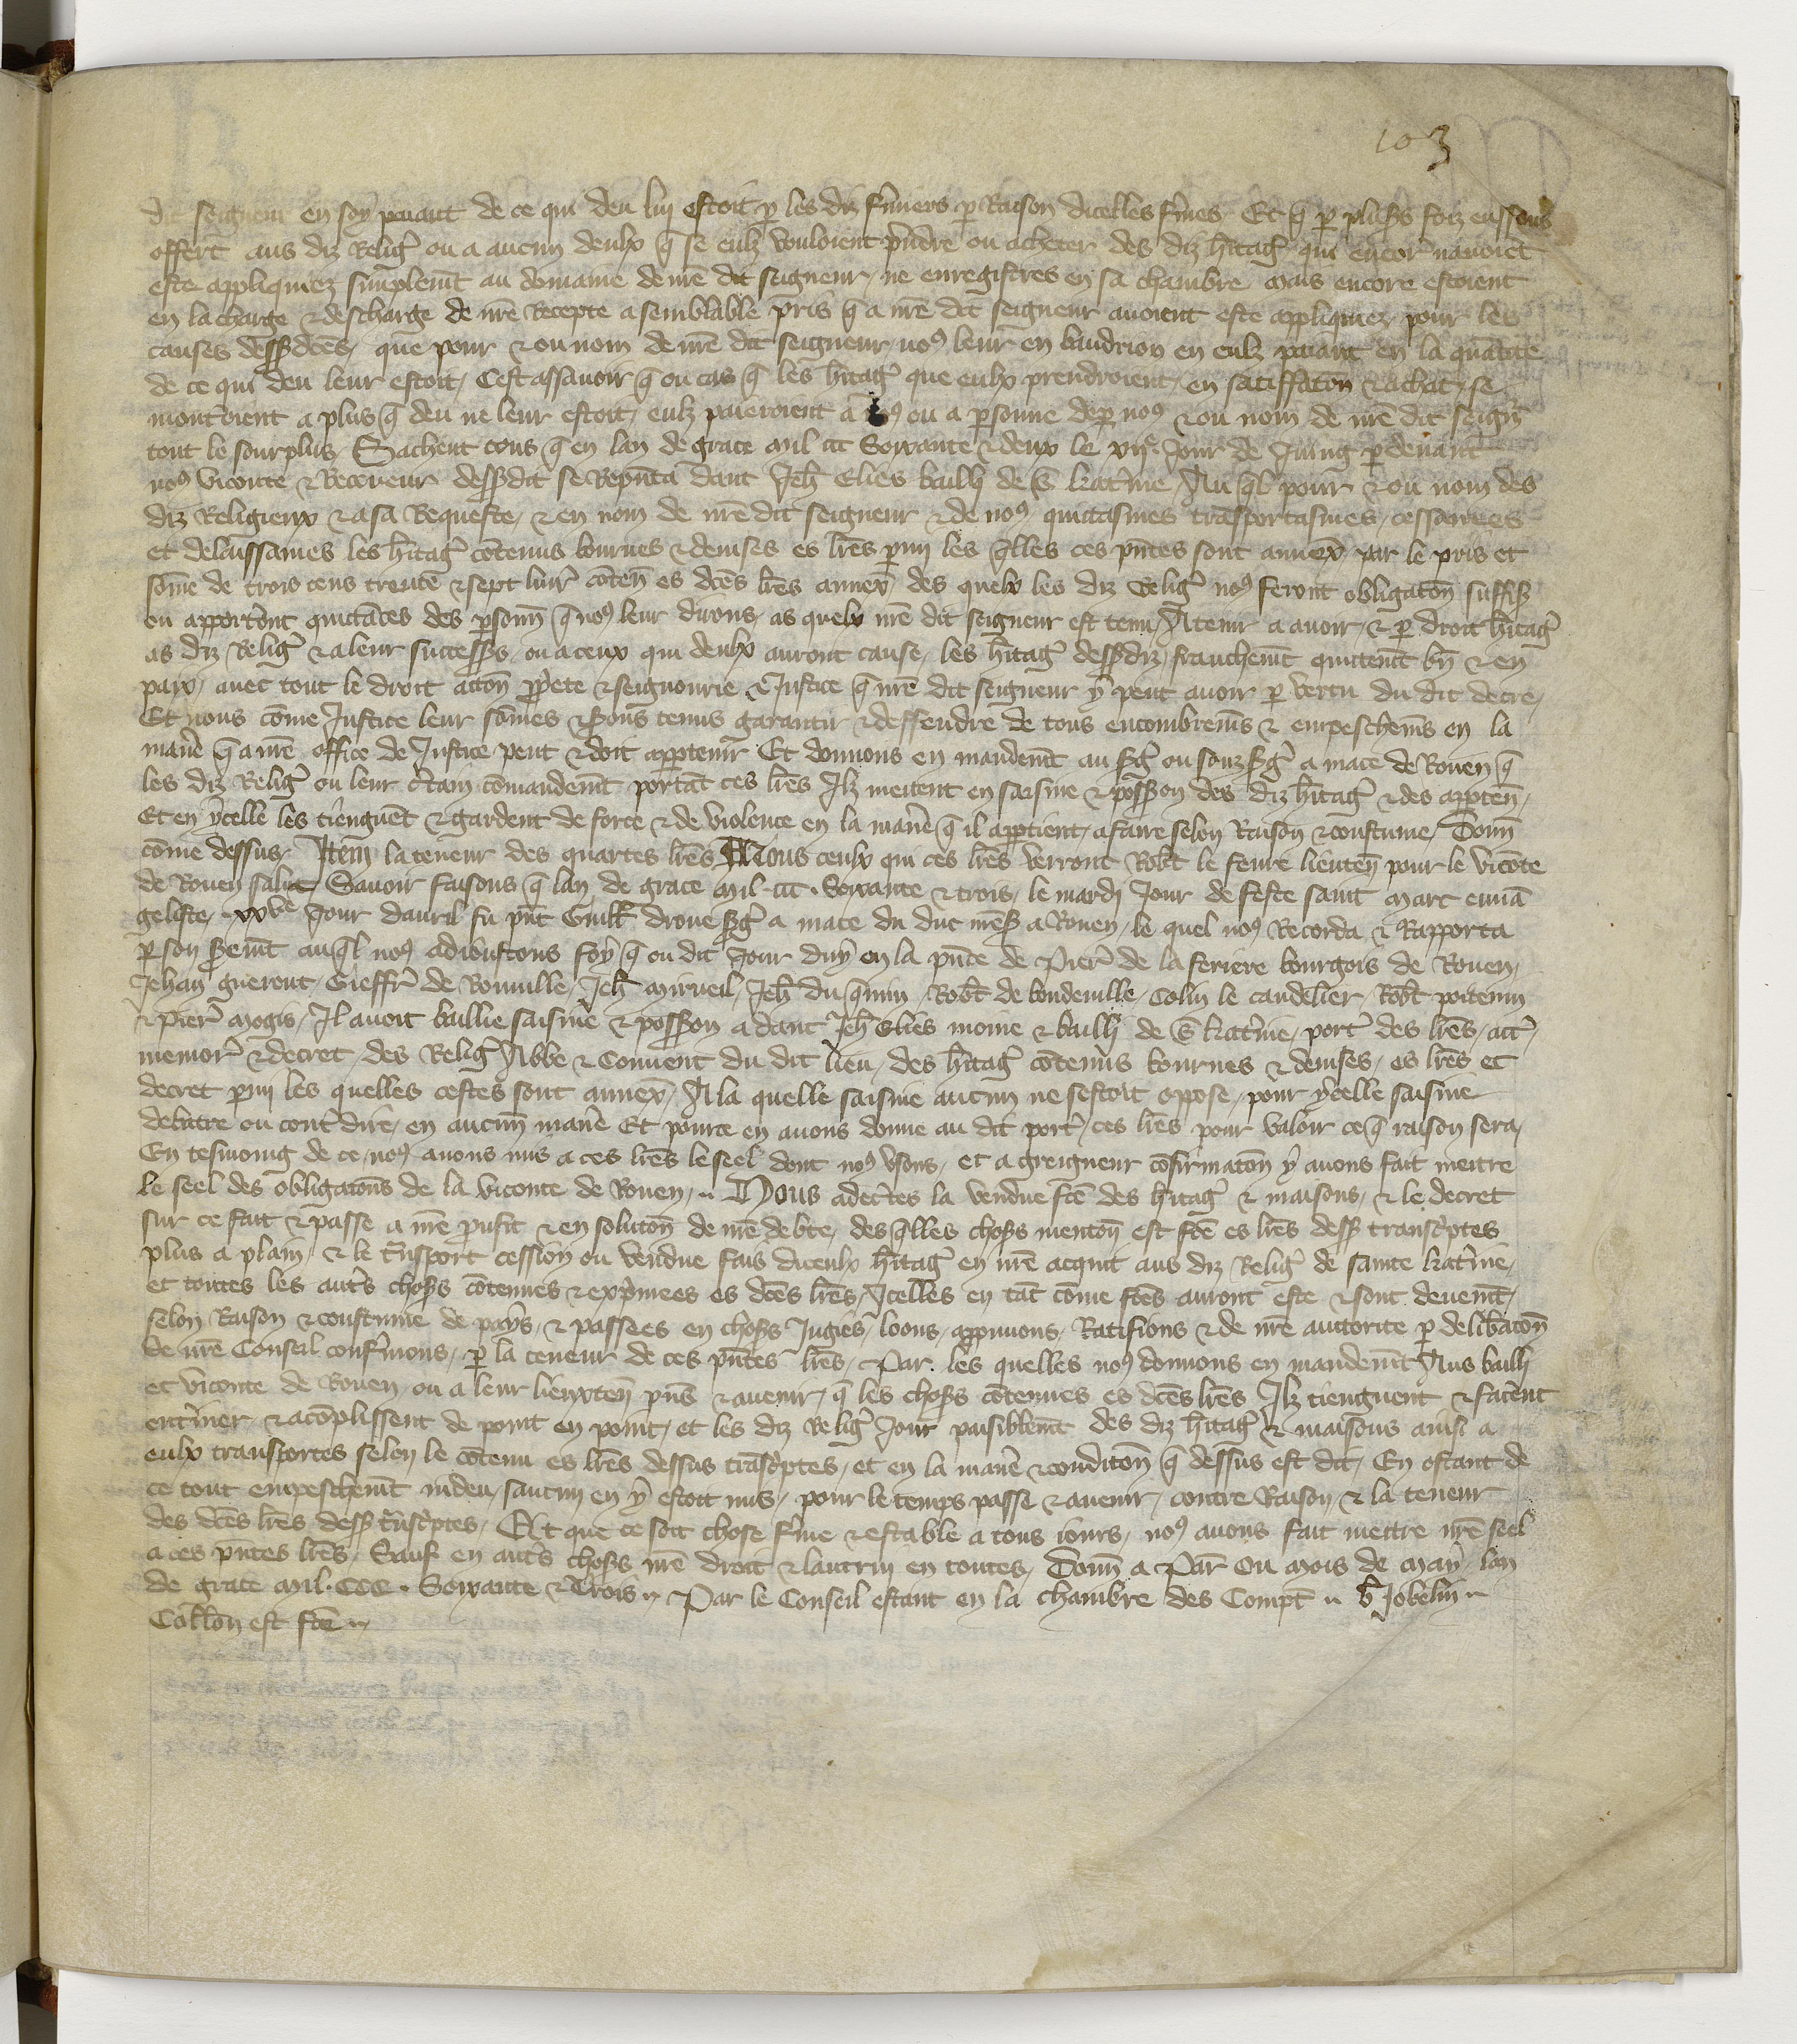 103
dit seigneur en soy paiant de ce qui deu lui estoit p les diz fmiers p Raison dicelles fmes Et q p plusrs foiz eussons
offert aus diz Relig ou a aucun deulx q se eulz vouloient prndre ou acheter des diz hitag qui encor navoiet
este appliquiez simplemt au domaine de nre dit seigneur, ne enregistres en sa chambre mais encore estoient
en la charge & descharge de nre Recepte a semblable pris q a nre dit seigneur avoient este appliquiez, pour les
causes dessdces, que pour & ou nom de nre dit seigneur, no9 leur en baudrion en eulz paiant en la quatite
de ce qui deu leur estoit, Cest assavoir q ou cas q les hitag que eulx prendroient, en satiffaton & achat, se
montoient a plus q deu ne leur estoit, eulz paieroient a no9 ou a psonne de p no9 & ou nom de nre dit seignr
tout le sourplus, Sachent tous q en lan de grace mil ccc Soixante & deux le xije Jour de Juing p devant
no9 viconte & Receveur dessdit se Repnta dant Jeh Elies bailli de S katine, Au ql pour & ou nom des
diz Religieux & a sa Requeste, & en nom de nre dit seigneur & de no9 quictasmes trasportasmes, cessames
et delaissames les hitag cotenus bournes & devises es lres pmi les qlles ces pntes sont annex, par le pris et
some de trois cens trente & sept livr coten es dces lres annex, des quelx les diz Relig no9 feront obligaton suffis
ou apporteront quictaces des psonn q no9 leur dirons, as quelx nre dit seigneur est tenu, A tenir a avoir, & p droit hitag
as diz Relig & a leur successrs, ou a ceux qui deulx auront cause, les hitag dessdiz, franchemt quictemt bn & en
paix, avec tout le droit acton ppiete & seignourie & Justice q nre dit seigneur y peut avoir p vertu du dit decre,
Et nous come Justice leur somes & serons tenus garantir & deffendre de tous encombremens & empeschemens en la
manie q a nre office de Justice peut & doit apptenir Et donnons en mandemt au sg ou souz sg a mace de Rouen q
les diz Relig ou leur ctain comandemt portat ces lres Ilz mettent en saisine & possion des diz hitag & des appten,
Et en ycelle les tienguet & gardent de force & de violence en la manie q il apptient, a faire selon Raison & coustume, Donn
come dessus, Item la teneur des quartes lres A tous ceulx qui ces lres verront Robt le fevre lieuten pour le vicote
de Rouen salut, Savoir faisons q lan de grace mil ccc. Soixante & trois, le mardi Jour de feste saint marc euua
geliste, xxve Jour davril fu pnt Guill droue sg a mace du duc nress a Rouen, le quel no9 Recorda & Rapporta
p son semt au ql no9 adioustons foy q ou dit Jour duy en la pnce de Pierr de la feriere bourgois de Rouen,
Jehan gueront, Gieffr de Bouville, Jeh mirueil, Jeh du qmin, Robt de bondeville, Colin le candelier, Robt poitevin
& Pierr mogis, Il avoit baillie saisine & possion a dant Jeh Elies moine & bailli de S katine, port des lres, act,
memor & decret, des Relig Abbe & Convent du dit lieu, des hitag cotenus bournes & devises, es lres et
decret pmi les quelles cestes sont annex, A la quelle saisine aucun ne sestoit oppose, pour ycelle saisine
debatre ou contdire, en aucun manie Et pource en avons donne au dit port, ces lres pour valoir ce q raison sera,
En tesmoing de ce, no9 avons mis a ces lres le seel dont no9 usons, et a greigneur cofirmaton y avons fait mettre
le seel des obligatons de la viconte de Rouen, Nous adectes la vendue fce des hitag & maisons, & le decret
sur ce fait & passe a nre pufit & en soluton de nre debte, des qlles choses menton est fce es lres dess transcptes
plus a plain, & le trnsport cession ou vendue fais diceulx hitag en nre acquit aus diz Relig de sainte katine,
et toutes les autrs choses cotenues & expmees es dces lres, Icelles en tat come fces auront este & sont deuemt,
selon Raison & coustume de pays, & passees en choses Jugies, loons, appuuons, Ratifions & de nre auctorite p delibacon
de nre Conseil confmons, p la teneur de ces pntes lres, Par les quelles no9 donnons en mandemt Aus bailli
et viconte de Rouen, ou a leur lieuxten pns & avenir, q les choses cotenues es dces lres Ilz tienguent & facent
entiner & acoplissent de point en point, et les diz Relig Jour paisiblemt des diz hitag & maisons ainsi a
eulx transportes selon le cotenu es lres dessus trascptes, et en la manie & conditon q dessus est dit, En ostant de
ce tout empeschemt indeu, saucun en y estoit mis, pour le temps passe & avenir, contre Raison & la teneur
des dces lres dess trnscptes, Et que ce soit chose fme & estable a tous iours, no9 avons fait mettre nre seel
a ces pntes lres, Sauf en autrs choses nre droit & lautrui en toutes, Donn a Par Ou mois de may lan
de grace mil. CCC. Soixante & Trois, Par le Conseil estant en la chambre des Compt, b Jobelin
Collon est fce